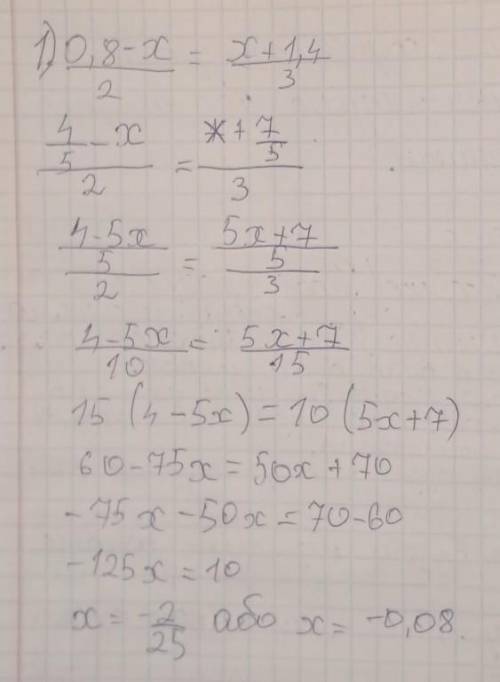 1) (0,8-x)/2 = (x+1,4)/3
(4/5 - x)/2 = (x + 7/5)/3
((4-5x)/5)/2 = ((5x+7)/5)/3
(4-5x)/10 = (5x+7)/15
15 (4-5x) = 10 (5x+7)
60-75x = 50x + 70
-75x - 50x = 70-60
-125x = 10
x = -2/25 або x = -0,08.